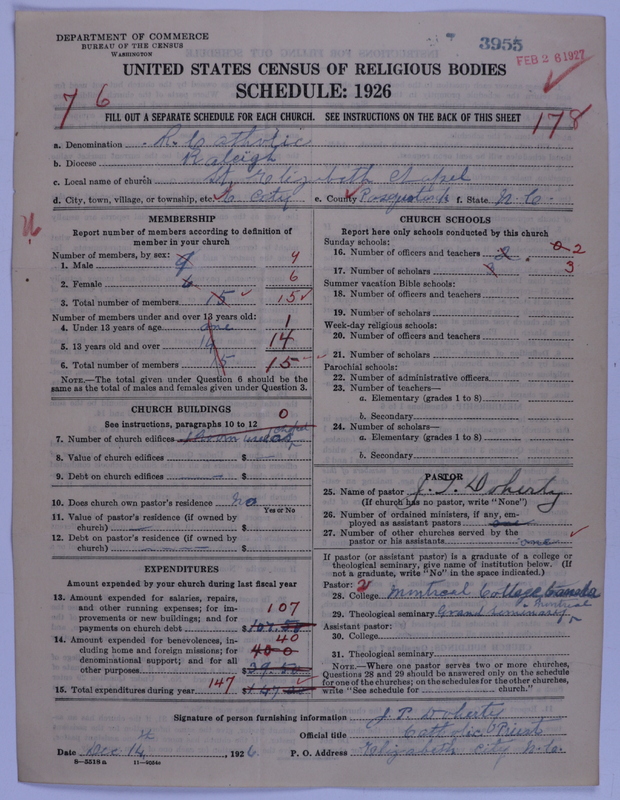 DEPARTMENT OF COMMERCE
BUREAU OF THE CENSUS
WASHINGTON
3955
FEB 26 1927
UNITED STATES CENSUS OF RELIGIOUS BODIES
SCHEDULE: 1926
76
FILL OUT A SEPARATE SCHEDULE FOR EACH CHURCH. SEE INSTRUCTIONS ON THE BACK OF THIS SHEET
178
a. Denomination R. Catholic
b. Diocese Raleigh
c. Local name of church St Elizabeth Chapel
d. City, town, village, or township, etc. E. City e. County Pasquotank f. State N. C.
MEMBERSHIP
Report number of members according to definition of
member in your church
Number of members, by sex:
1. Male 9 9
2. Female 6 6
3. Total number of members 15 15
Number of members under and over 13 years old:
4. Under 13 years of age one 1
5. 13 years old and over 14 14
6. Total number of members 15 15
NOTE.—The total given under Question 6 should be the
same as the total of males and females given under Question 3.
CHURCH BUILDINGS
See instructions, paragraphs 10 to 12 0
7. Number of church edifices 1 Room used as chapel
8. Value of church edifices $
9. Debt on church edifices $
10. Does church own pastor's residence no
Yes or No
11. Value of pastor's residence (if owned by
church) $
12. Debt on pastor's residence (if owned by
church) $
EXPENDITURES
Amount expended by your church during last fiscal year
13. Amount expended for salaries, repairs,
and other running expenses; for im-
provements or new buildings; and for
payments on church debt $ 107.50 107
14. Amount expended for benevolences, in-
cluding home and foreign missions; for
denominational support; and for all
other purposes $ 39.50 40
15. Total expenditures during year 147 $ 147
CHURCH SCHOOLS
Report here only schools conducted by this church
Sunday schools:
16. Number of officers and teachers 2 2
17. Number of scholars 3 3
Summer vacation Bible schools:
18. Number of officers and teachers
19. Number of scholars
Week-day religious schools:
20. Number of officers and teachers
21. Number of scholars
Parochial schools:
22. Number of administrative officers
23. Number of teachers—
a. Elementary (grades 1 to 8)
b. Secondary
24. Number of scholars—
a. Elementary (grades 1 to 8)
b. Secondary
PASTOR
25. Name of pastor J. P. Doherty
(If church has no pastor, write "None")
26. Number of ordained ministers, if any, em-
ployed as assistant pastors one
27. Number of other churches served by the
pastor or his assistants one
If pastor (or assistant pastor) is a graduate of a college or
theological seminary, give name of institution below. (If
not a graduate, write "No" in the space indicated.)
Pastor: 2
28. College Montreal College Canada
29. Theological seminary Grand Seminary Montreal
Assistant pastor:
30. College
31. Theological seminary
NOTE.—Where one pastor serves two or more churches,
Questions 28 and 29 should be answered only on the schedule
for one of the churches; on the schedules for the other churches,
write "See schedule for church."
Signature of person furnishing information J. P. Doherty
Official title Catholic Priest
Date Dec 14, 1926. P. O. Address Elizabeth City N. C.
8—5518 a 11—9054c